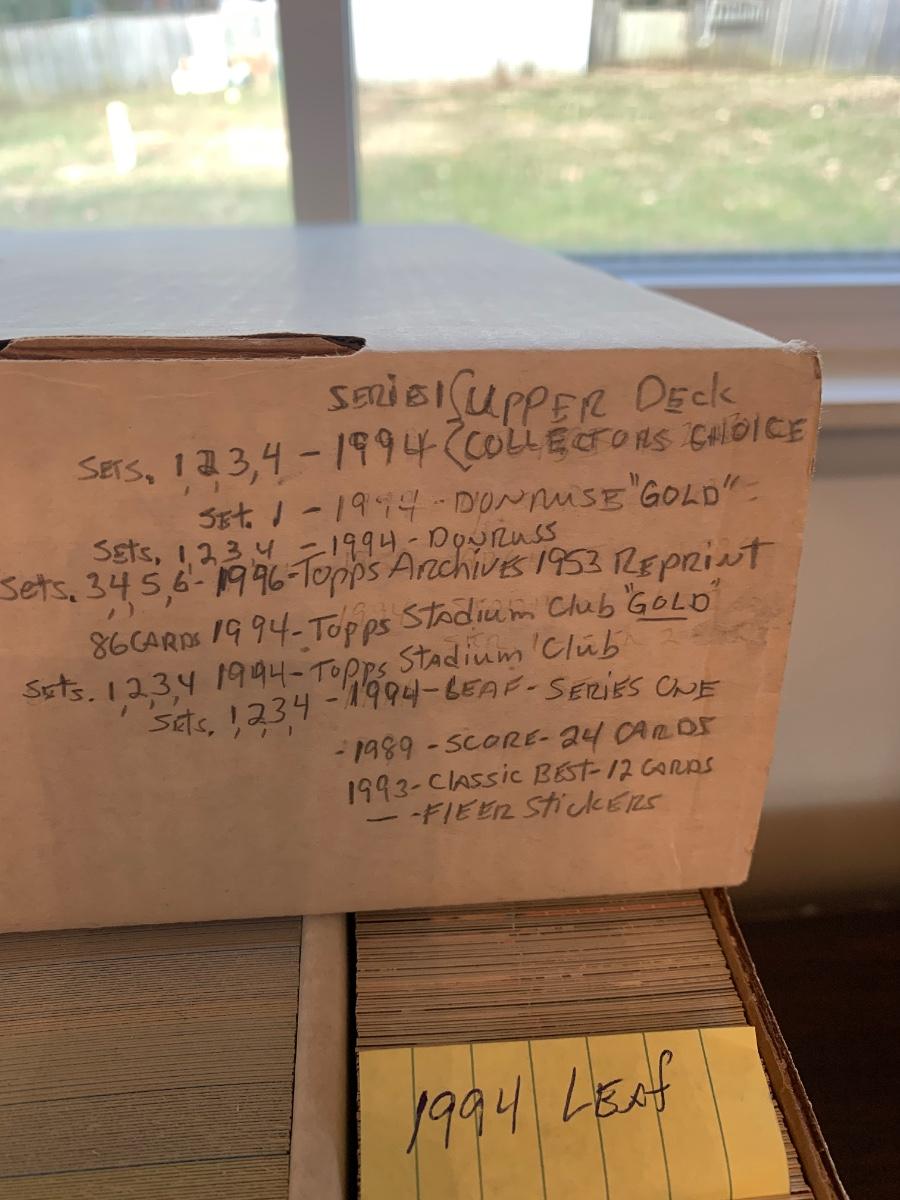 SERIES 1 { UPPER DECK
SETS. 1,2,3,4 - 1994 { COLLECTORS CHOICE
SET. 1 - 1994 - DONRUSE "GOLD" -
SETS. 1,2,3,4 - 1994 - DONRUSS
Sets. 3,4,5,6 - 1996 - Topps Archives 1953 REPRINT
86 CARDS 1994 - Topps Stadium Club "GOLD"
Sets. 1,2,3,4 1994 - Topps Stadium Club
Sets. 1,2,3,4 - 1994 - LEAF - SERIES ONE
- 1989 - SCORE - 24 CARDS
1993 - CLASSIC BEST - 12 CARDS
— - FlEER StickERS
1994 LEAf